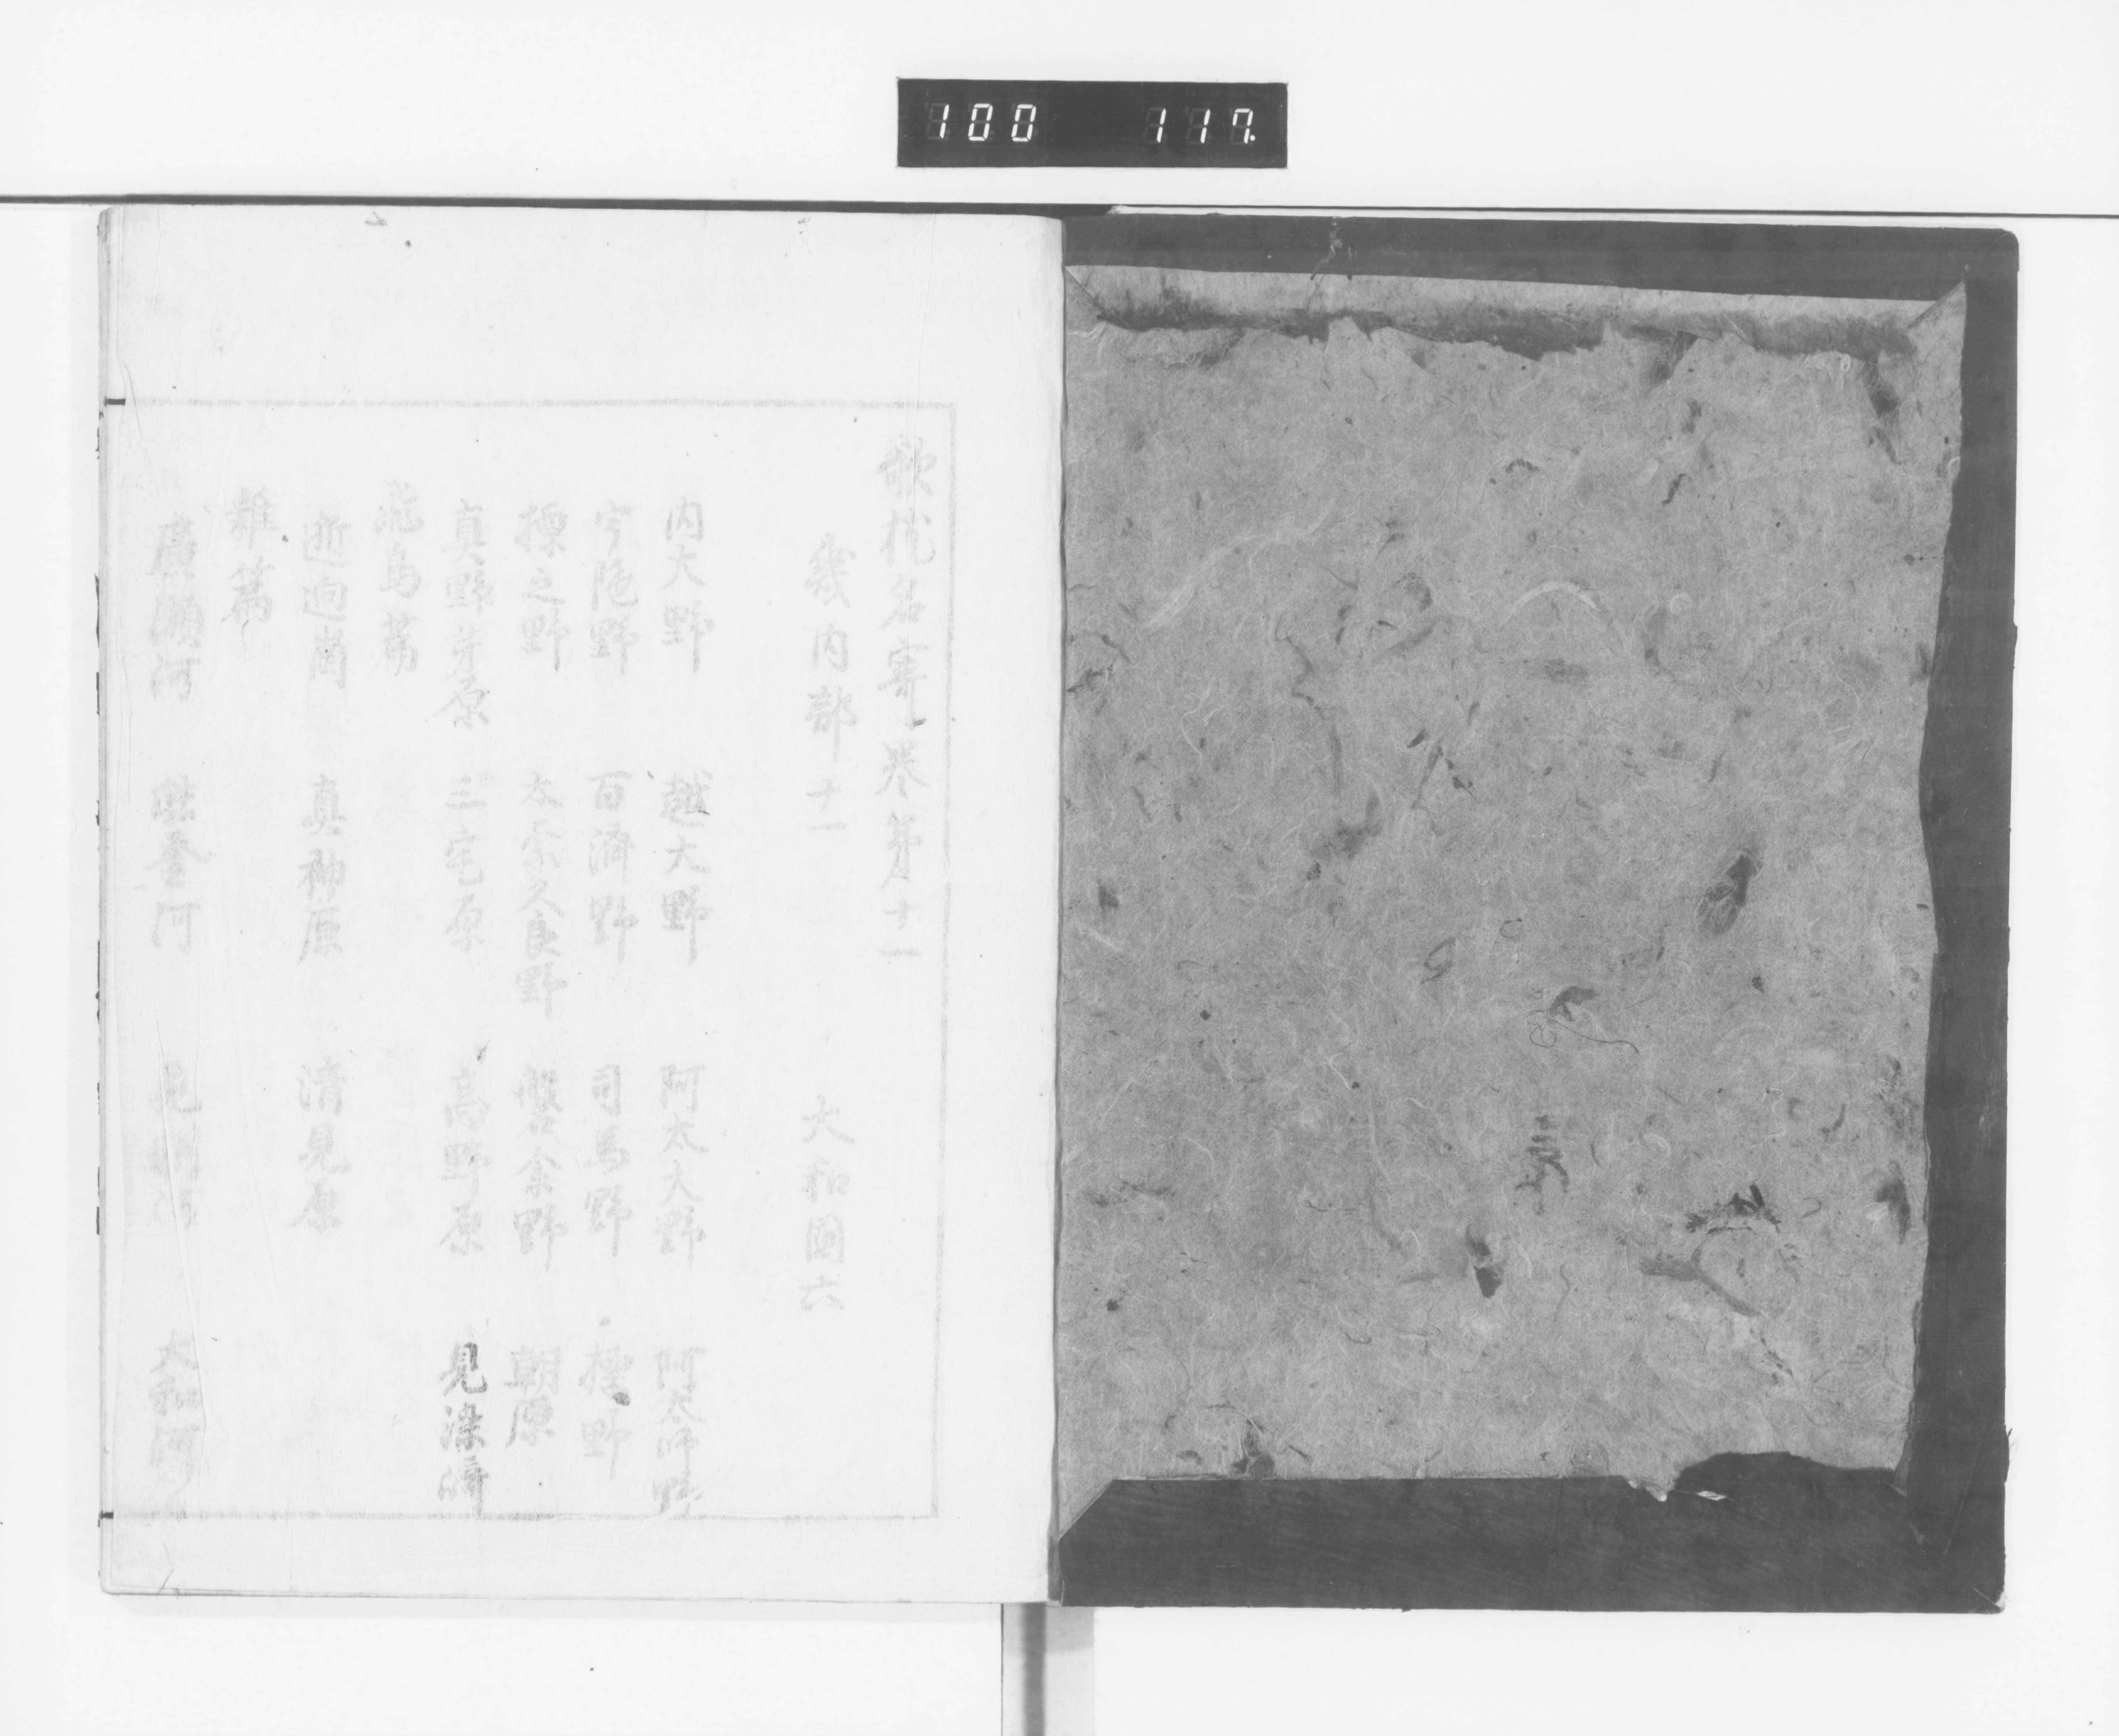 100 117.
歌枕名寄卷第十一
畿内部十一 大和國六
内大野 越大野 阿太大野 阿太師野
宇陁野 百済野 司馬野 野
摽之野 太奈久良野 磐余野 朝原
真野芽原 三宅原 高野原 見染﨑
飛鳥篇
逝廻崗 真神原 清見原
雜篇
廣瀬河 能登河 大和河